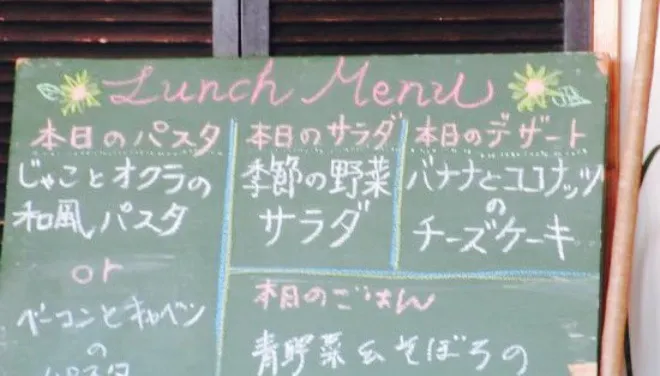 Lunch Menu
本日のパスタ
じゃことオクラの
和風パスタ
or
ベーコンとキャベツ
の
本日のサラダ
季節の野菜
サラダ
本日のデザート
バナナとココナッツ
の
チーズケーキ
本日のごはん
青野菜&そぼろの